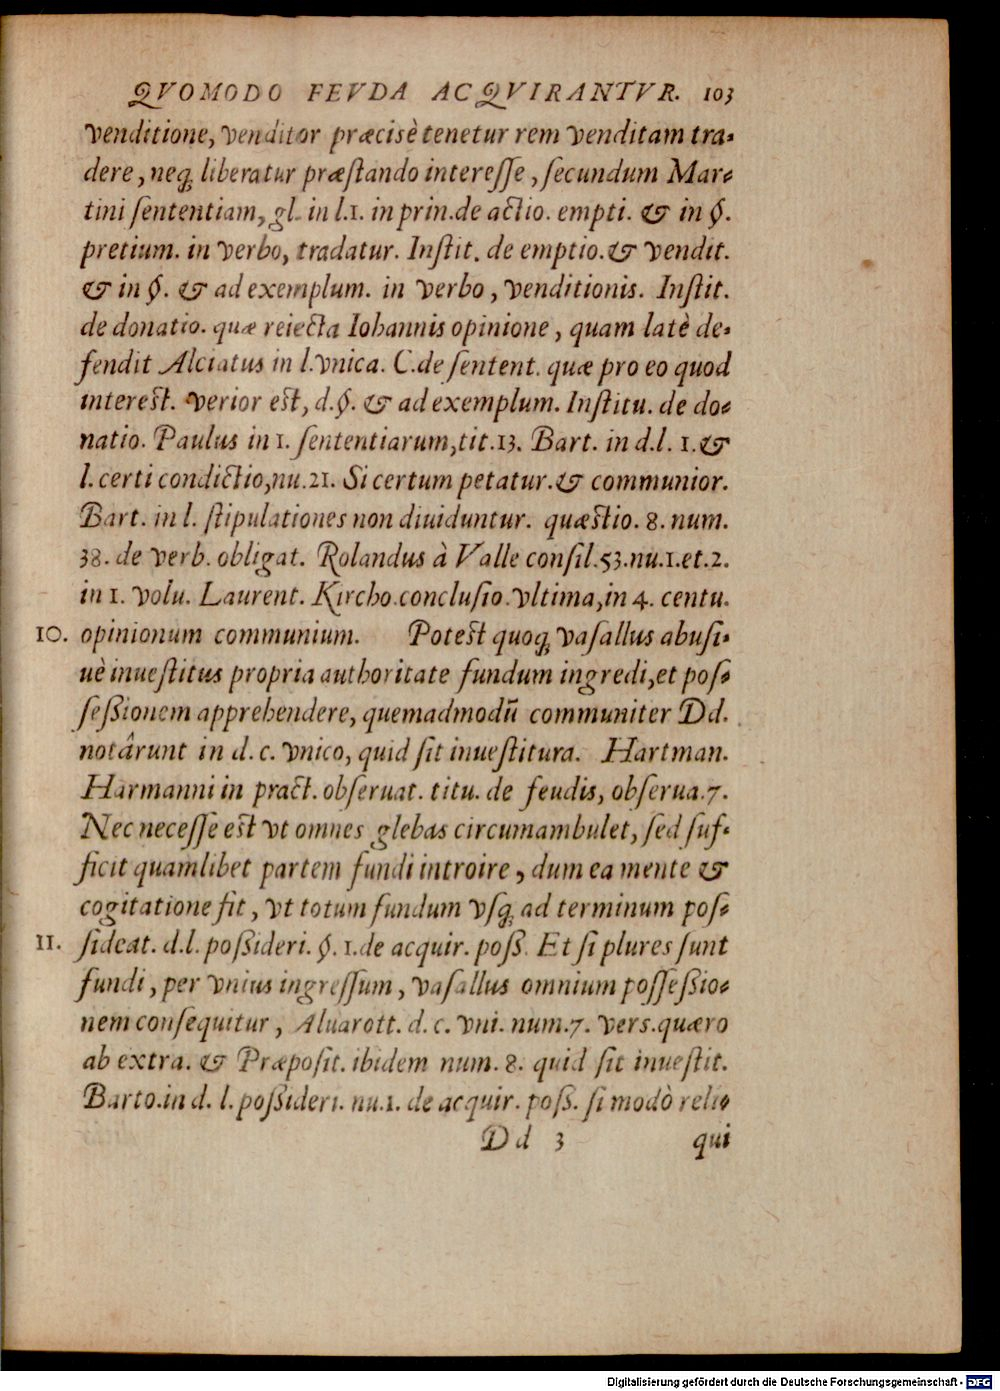 QVOMODO FEVDA ACQVIRANTVR. 103
venditione, venditor præcisè tenetur rem venditam tra-
dere, neq; liberatur præſtando intereſſe, ſecundum Mar-
tini ſententiam, gl. in l.1. in prin. de actio. empti. & in §.
pretium. in verbo, tradatur. Inſtit. de emptio. & vendit.
& in §. & ad exemplum. in verbo, venditionis. Inſtit.
de donatio. quæ reiecta Iohannis opinione, quam latè de-
fendit Alciatus in l. vnica. C. de ſentent. quæ pro eo quod
intereſt. verior eſt, d.§. & ad exemplum. Inſtitu. de do-
natio. Paulus in 1. ſententiarum, tit.13. Bart. in d.l. 1. &
l. certi condictio, nu.21. Si certum petatur. & communior.
Bart. in l. ſtipulationes non diuiduntur. quæſtio. 8. num.
38. de verb. obligat. Rolandus à Valle conſil.53.nu.1.et.2.
in 1. volu. Laurent. Kircho.concluſio.vltima, in 4. centu.
10. opinionum communium. Poteſt quoq; vaſallus abuſi-
uè inueſtitus propria authoritate fundum ingredi, et poſ-
ſeßionem apprehendere, quemadmodũ communiter Dd.
notârunt in d. c. vnico, quid ſit inueſtitura. Hartman.
Harmanni in pract. obſeruat. titu. de feudis, obſerua.7.
Nec neceſſe eſt vt omnes glebas circumambulet, ſed ſuf-
ficit quamlibet partem fundi introire, dum ea mente &
cogitatione ſit, vt totum fundum vſq; ad terminum poſ-
11. ſideat. d.l. poßideri. §. 1. de acquir. poß. Et ſi plures ſunt
fundi, per vnius ingreſſum, vaſallus omnium poſſeßio-
nem conſequitur, Aluarott. d. c. vni. num.7. verſ. quæro
ab extra. & Præpoſit. ibidem num. 8. quid ſit inueſtit.
Barto. in d. l. poßideri. nu.1. de acquir. poß. ſi modò reli-
Dd 3 qui
Digitalisierung gefördert durch die Deutsche Forschungsgemeinschaft - DFG